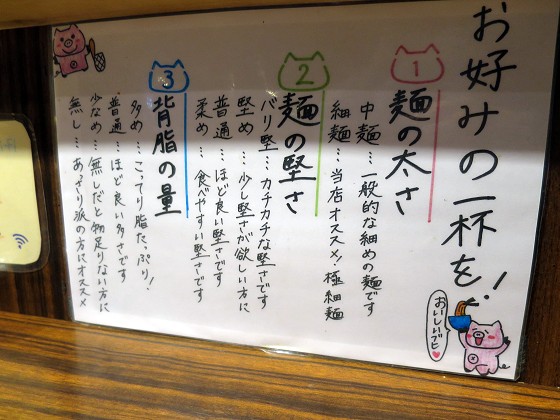 お好みの一杯を!
1
麺の太さ
中麺…一般的な細めの麺です
細麺…当店オススメ!極細麺
2
麺の堅さ
バリ堅…カチカチな堅さです
堅め…少し堅さが欲しい方に
普通…ほど良い堅さです
柔め…食べやすい堅さです
3
背脂の量
多め…こってり脂たっぷり!
普通…ほど良い多さです
少なめ…無しだと物足りない方に
無し…あっさり派の方にオススメ
おいしいブヒ♥